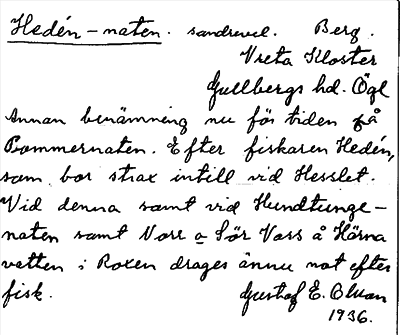 Hedén-naten. sandrevel. Berg.
Vreta Kloster
Gullbergs hd. Ögl
Annan benämning nu för tiden på
Bommernaten. Efter fiskaren Hedén,
som bor strax intill vid Hesslet.
Vid denna samt vid Hundtunge-
naten samt Norr o Sör Vass å Hörna
vatten i Roxen drages ännu not efter
fisk. Gustaf E. Olsson
1936.